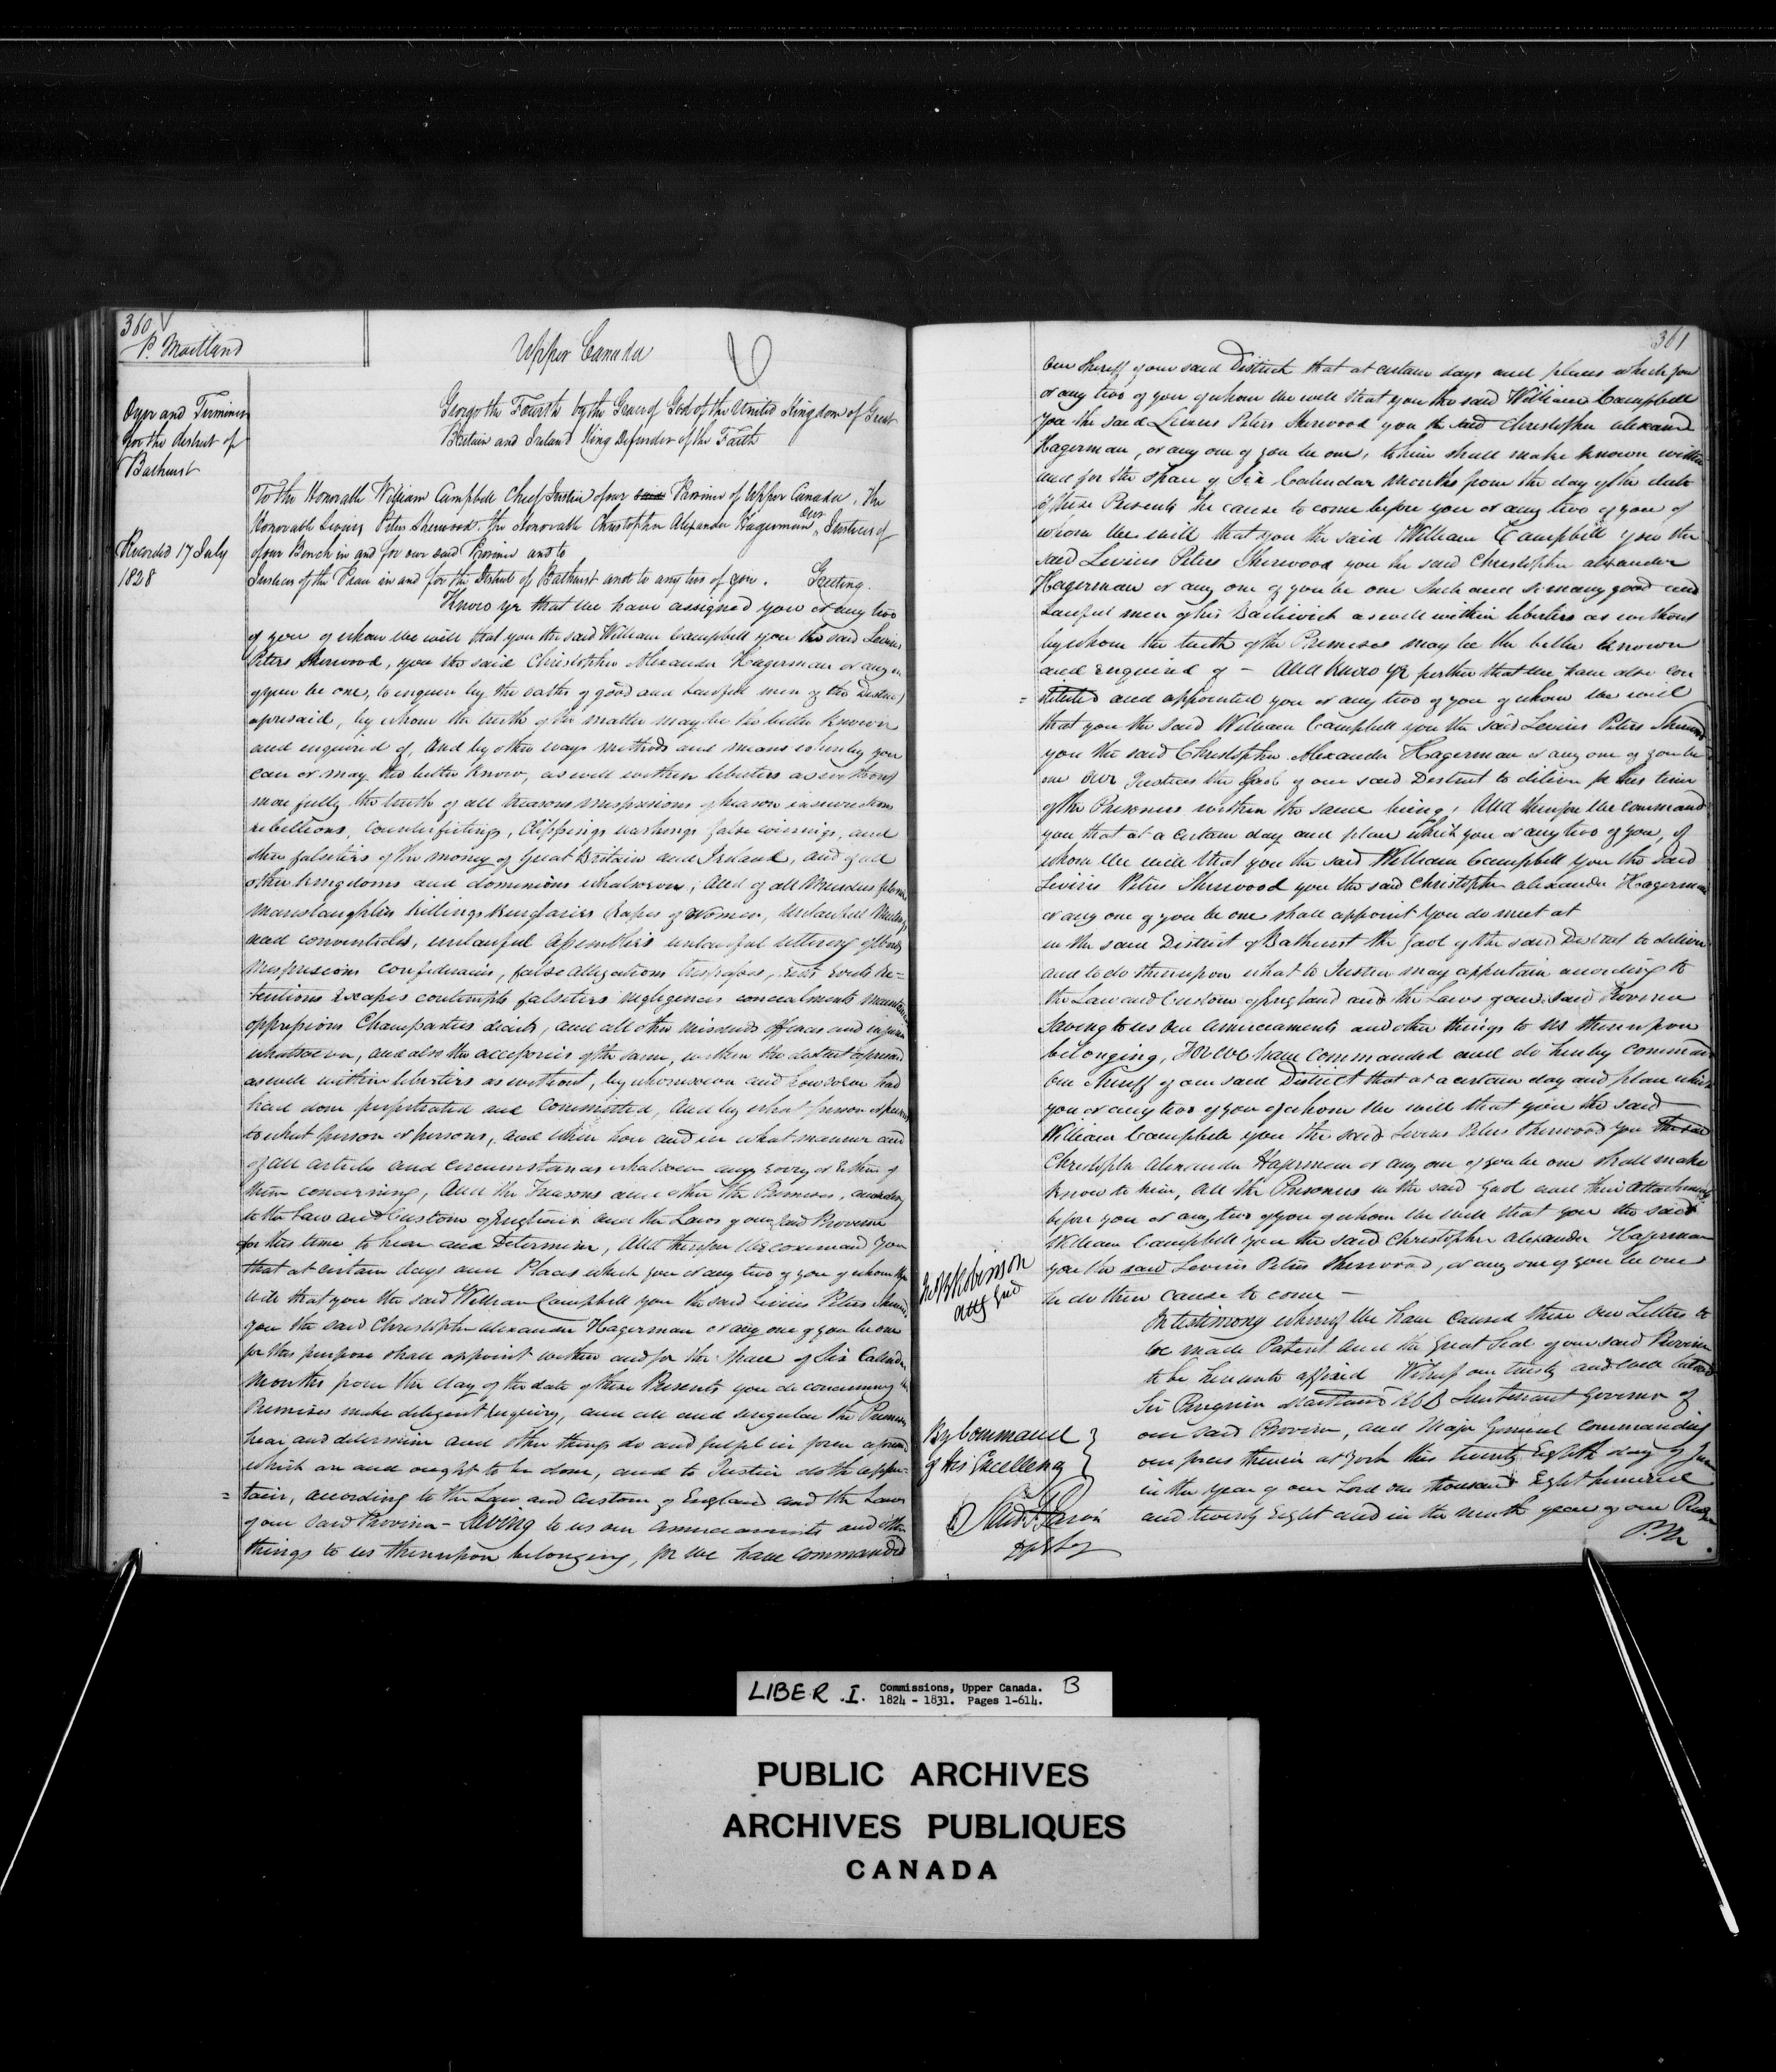 360
P. Maitland
Upper Canada
Oyer and Terminer
for the district of
Bathurst
Recorded 17 July
1828
George the Fourth by the Grace of God of the United Kingdom of Great
Britain and Ireland King Defender of the Faith
To the Honorable William Campbell Chief Justice of our said Province of Upper Canada. The
Honorable Levius Peters Sherwood. The Honorable Christopher Alexander Hagerman, Our Justices of
of our Bench in and for our said Province and to
Justices of the Peace in and for the District of Bathurst and to any two of you. Greeting.
Know ye that we have assigned you or any two
of you of whom we will that you the said William Campbell you the said Levius
Peters Sherwood, you the said Christopher Alexander Hagerman or any on
of you be one, to enquire by the oaths of good and Lawful men of the District
aforesaid, by whom the truth of the matter may be the better known
and enquired of, And by other ways methods and means whereby you
can or may the better know, as well within liberties as without
more fully the truth of all treasons misprisions of treason insurrections
rebellions, Counterfeitings, Clippings washings false coinings, and
other falsities of the money of Great Britain and Ireland, and of all
other kingdoms and dominions whatsoever; And of all Murders felonies
Manslaughters killings Burglaries Rapes of Women, Unlawful Meetings
and conventicles, unlawful assemblies unlawful uttering of Words
Misprisions confederacies, false allegations trespasses, Riots Routs Re=
tentions Escapes contempts falsities negligences concealments maintenance
oppressions Champarties deceits, and all other misdeeds offences and injuries
whatsoever, and also the accessories of the same, within the district aforesaid
as well within liberties as without, by whomsoever and howsoever had
had done perpetrated and Committed, And by what person or persons
to what person or persons, and when how and in what manner and
of all articles and circumstances whatsoever any every or either of
them concerning, And the Treasons and other the Premises, according
to the Law and Custom of England and the Laws of our said Province
for this time to hear and Determine, And therefore We command you
that at certain days and Places which you or any two of you of whom We
will that you the said William Campbell you the said Levius Peters Sherwood
you the said Christopher Alexander Hagerman or any one of you be one
for this purpose shall appoint within and for the space of Six Calendar
Months from the day of the date of these Presents you do concerning the
Premises make diligent enquiry, and all and singular the Premises
hear and determine and other things do and fulfil in form aforesaid
which are and ought to be done, and to Justice doth apper=
= tain, according to the Law and Custom of England and the Laws
of our said Province - Saving to us our amerciaments and other
things to us thereupon belonging, for we have commanded
361
Our Sheriff of our said District that at certain days and places which you
or any two of you of whom we will that you the said William Campbell
you the said Levius Peters Sherwood you the said Christopher Alexand
Hagerman, or any one of you be one, to him shall make known within
and for the space of Six Calendar Months from the day of the date
of these Presents he cause to come before you or any two of you of
whom we will that you the said William Campbell you the
said Levius Peters Sherwood you the said Christopher Alexander
Hagerman or any one of you be one Such and so many good and
Lawful men of his Bailiwick as well within liberties as without
by whom the truth of the Premises may be the better known
and enquired of - And know ye further that we have also con
= stituted and appointed you or any two of you of whom we will
that you the said William Campbell you the said Levius Peters Sherwood
you the said Christopher Alexander Hagerman or any one of you be
one our Justices the Gaol of our said District to deliver for this time
of the Prisoners within the same being, And therefore we command
you that at a certain day and place which you or any two of you, of
whom we will that you the said William Campbell you the said
Levius Peters Sherwood you the said Christopher Alexander Hagerman
or any one of you be one shall appoint You do meet at
in the said District of Bathurst the Gaol of the said District to deliver
and to do thereupon what to Justice may appertain according to
the Law and Custom of England and the Laws of our said Province
Saving to us Our amerciaments and other things to us thereupon
belonging, For we have commanded and do hereby command
Our Sheriff of our said District that at a certain day and place which
you or any two of you of whom we will that you the said
William Campbell you the said Levius Peters Sherwood you the said
Christopher Alexander Hagerman or any one of you be one shall make
know to him, all the Prisoners in the said Gaol and their Attachments
before you or any two of you of whom we will that you the said
William Campbell you the said Christopher Alexander Hagerman
you the said Levius Peters Sherwood, or any one of you be one
he do then cause to come -
In testimony whereof we have caused these Our Letters to
be made Patent and the Great Seal of our said Province
to be hereunto affixed Witness our trusty and well beloved
Sir Peregrine Maitland KCB Lieutenant Governor of
our said Province, and Major General Commanding
our forces therein at York this twenty Eighth day of
in the year of our Lord one thousand Eight hundred
and twenty Eight and in the ninth year of our Reign
P.M.
Jno B Robinson
Atty Genl
By Command
of His Excellency
LIBER . I. Commissions, Upper Canada. B
1824 - 1831. Pages 1-614.
PUBLIC ARCHIVES
ARCHIVES PUBLIQUES
CANADA